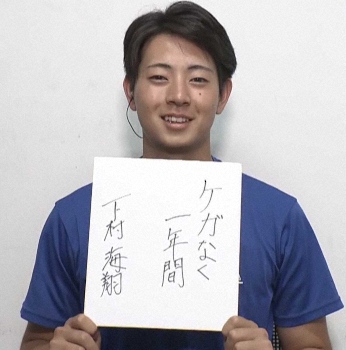 ケガなく
一年間
下村海翔